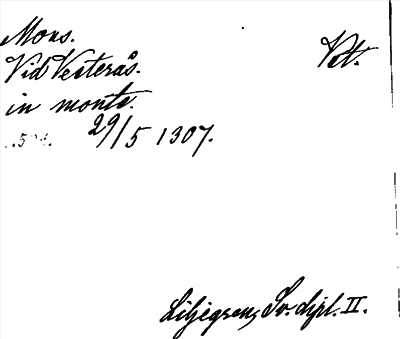 Mons. Vet.
Vid Vesterås.
in monte.
29/5 1307.
Liljegren, Sv. dipl. II.